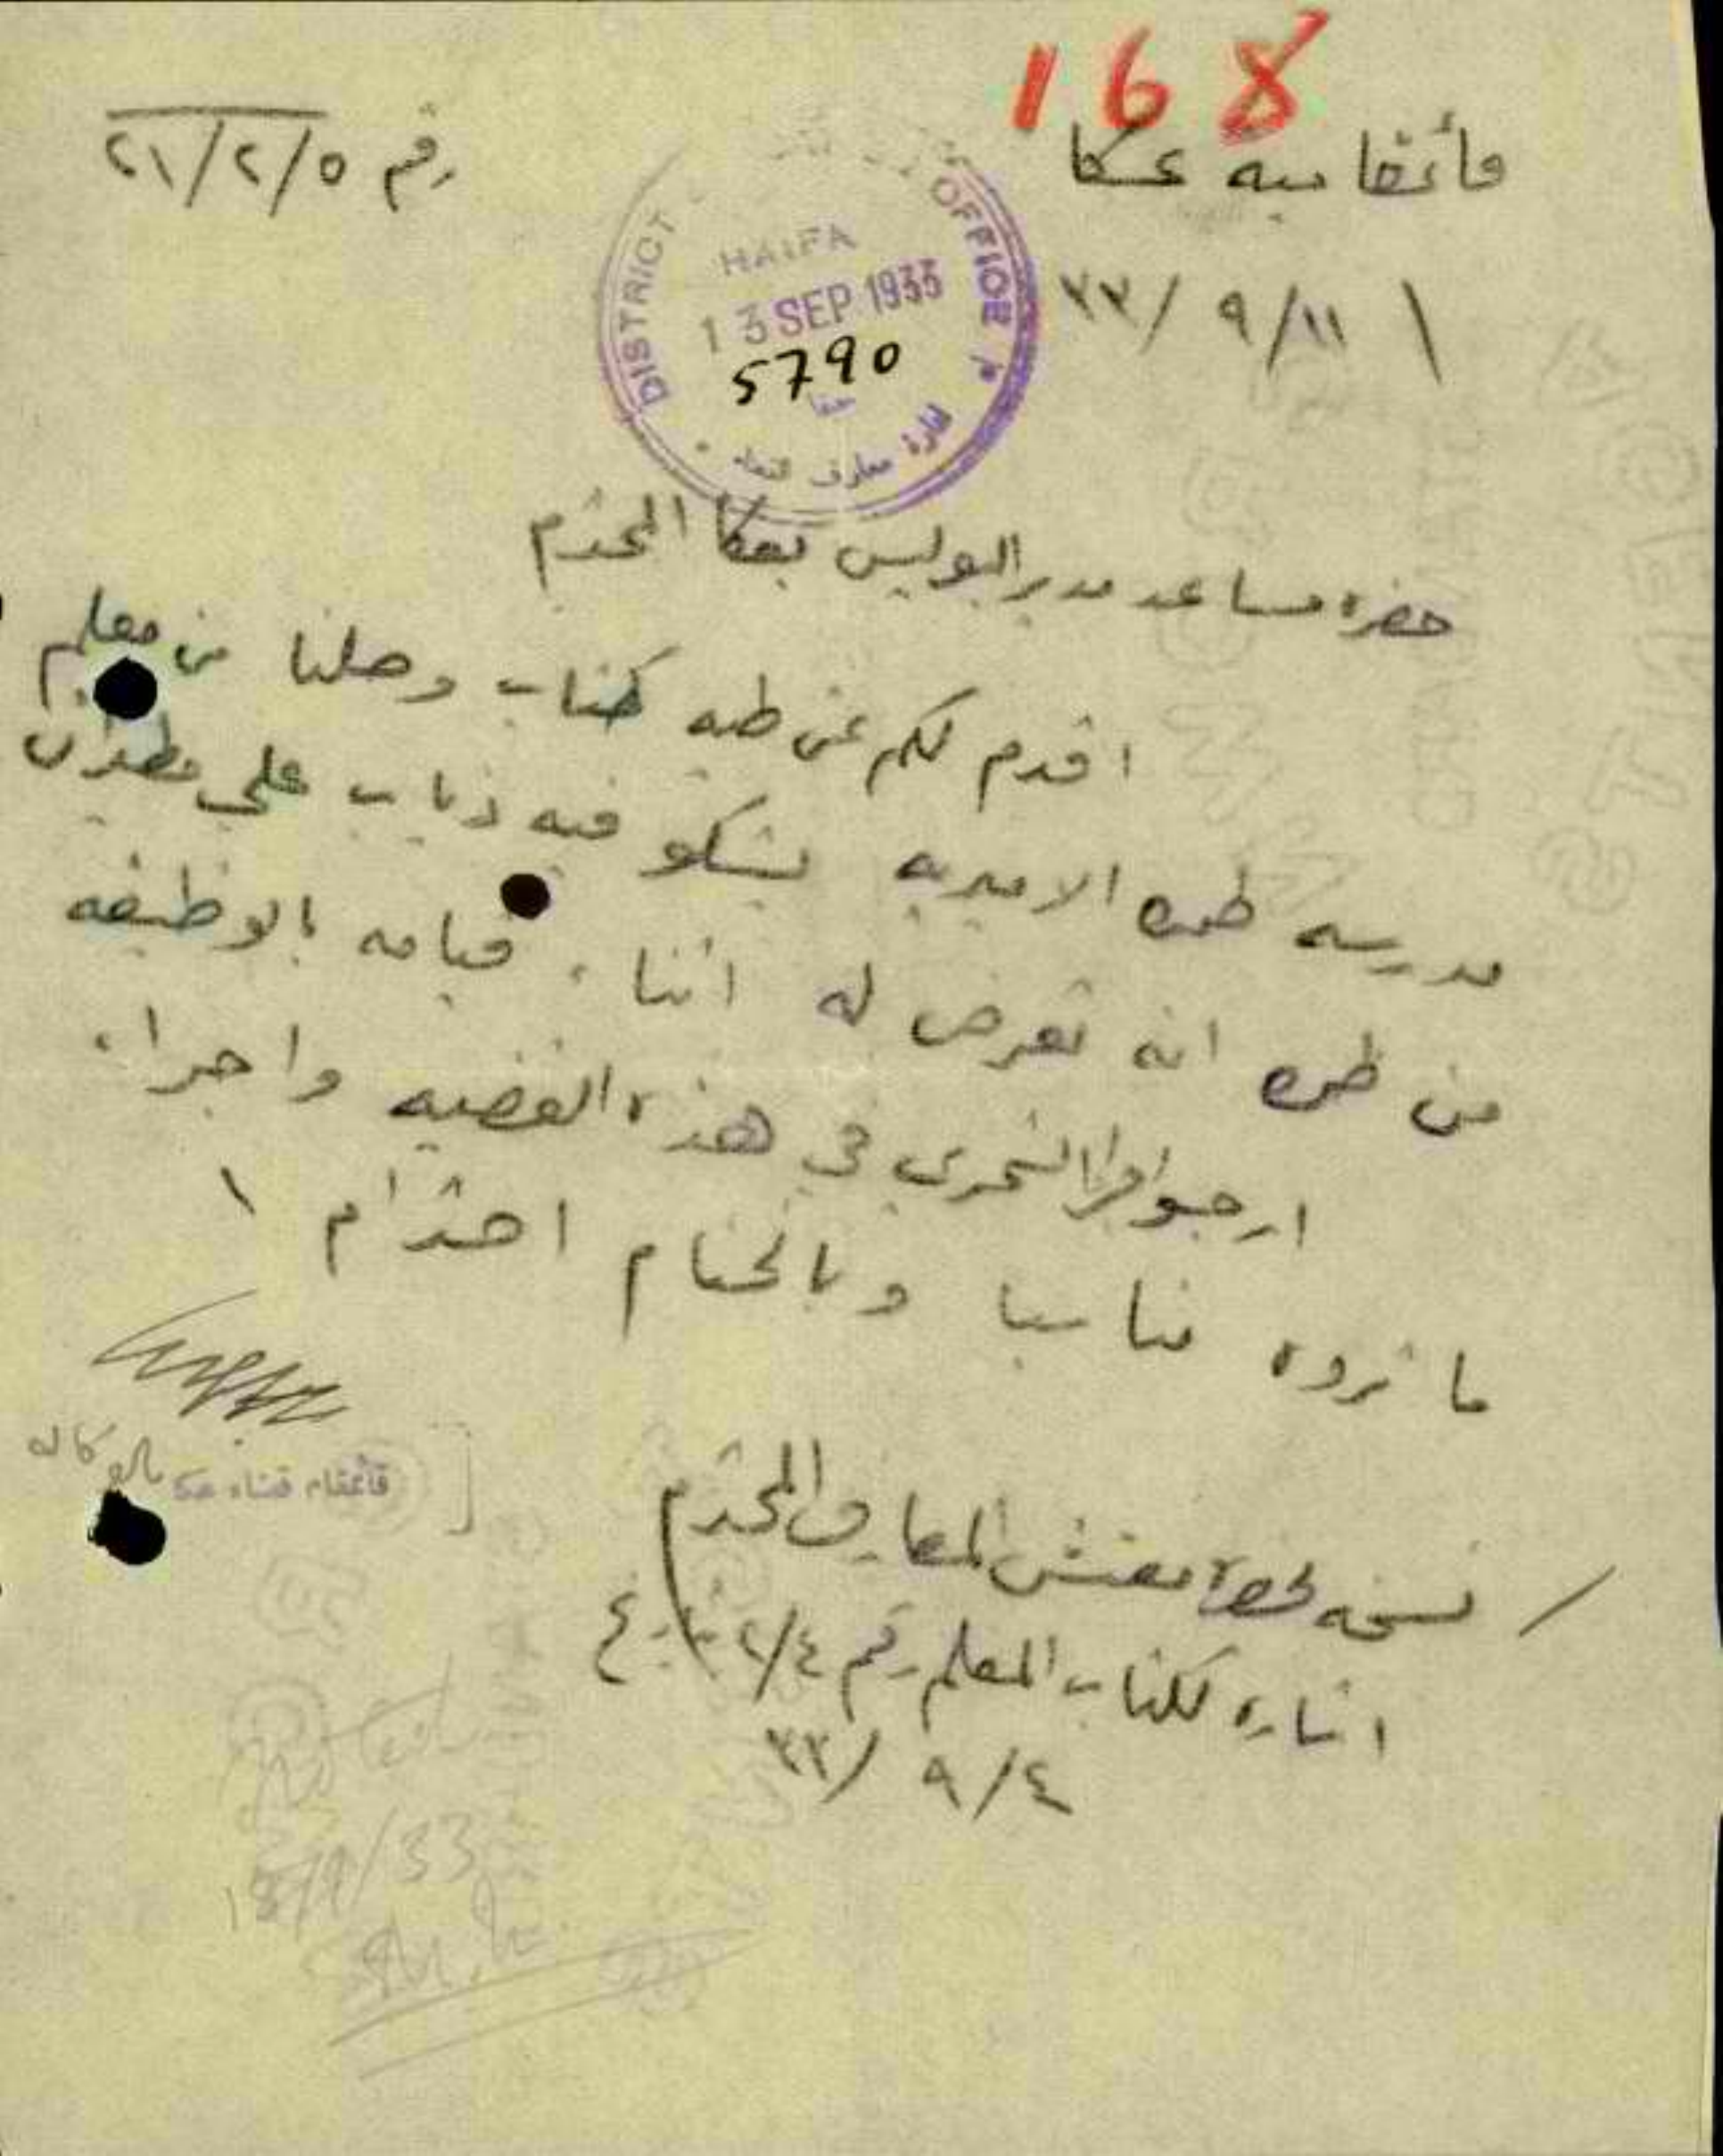 168
قائمقامية عكا
رقم ٢١/٢/٥
١١/ ٩ /٣٣
DISTRICT OFFICE
HAIFA
13 SEP 1933
5790
حيفا
ادارة معارف
حضرة مساعد مدير البوليس بعكا المحترم
اقدم لكم عن طيه كتاب وصلنا من معلم
مدرسه طمره الاميريه يشكو فيه ذياب علي
من طمره انه تعرض له اثناء قيامه بالوظيفه
ارجو اجرا التحري في هذه القضيه واجراء
ما تروه مناسبا وبالختام احترام
قائمقام قضاء عكا بالوكاله
نسخه لحضرة مفتش المعارف المحترم
اشاره لكتاب المعلم رقم
٤/ ٩ /٣٣